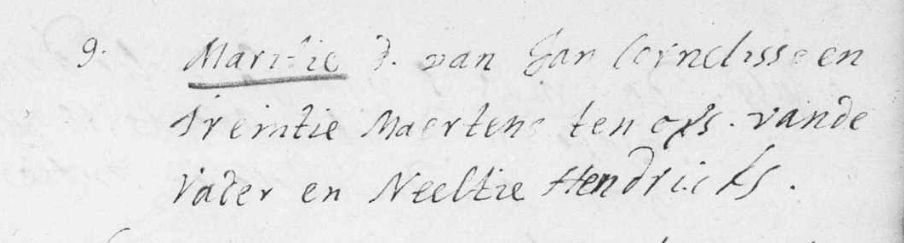 9. Maritie d. van Jan Cornelisse en
Treintie Maertens ten ovs. vande
Vader en Neeltie Hendricks.